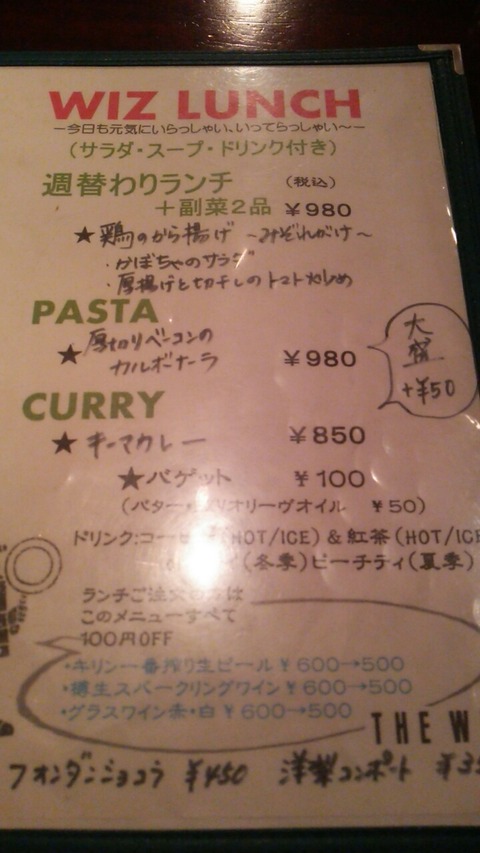 WIZ LUNCH
ー今日も元気にいらっしゃい、いってらっしゃい〜ー
(サラダ・スープ・ドリンク付き)
週替わりランチ (税込)
＋副菜2品 ¥980
★鶏のから揚げ 〜みぞれがけ〜
・かぼちゃのサラダ
・厚揚げと切干しのトマト炒め
PASTA
★厚切りベーコンの
カルボナーラ ¥980
大盛
+¥50
CURRY
★キーマカレー ¥850
★バゲット ¥100
(バター・ オリーヴオイル ¥50)
ドリンク:コーヒー(HOT/ICE)&紅茶(HOT/ICE
(冬季)ピーチティ(夏季)
ランチご注文の方は
このメニューすべて
100円OFF
・キリン一番搾り生ビール¥600→500
・樽生スパークリングワイン¥600→500
・グラスワイン赤・白¥600→500
THE W
フォンダンショコラ ¥450 洋梨コンポート ¥35